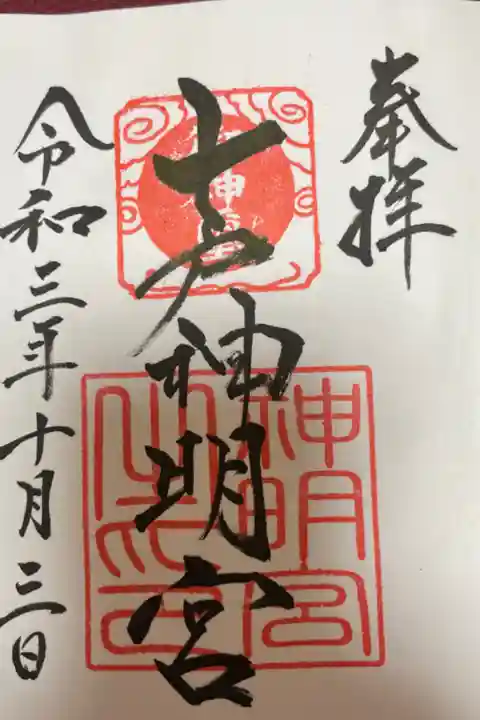 奉拝
七戸神明宮
令和三年十月三日
神明宮
之印